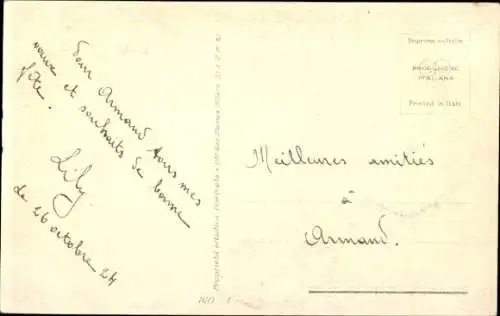 Pour Armand tous mes
vœux et souhaits de bonne
fête.
Lily
Le 26 octobre 24
Meilleures amitiés
à
Armand.
Imprimé en Italie
PRODUZIONE
ITALIANA
Printed in Italy
Proprietà artistica riservata
1